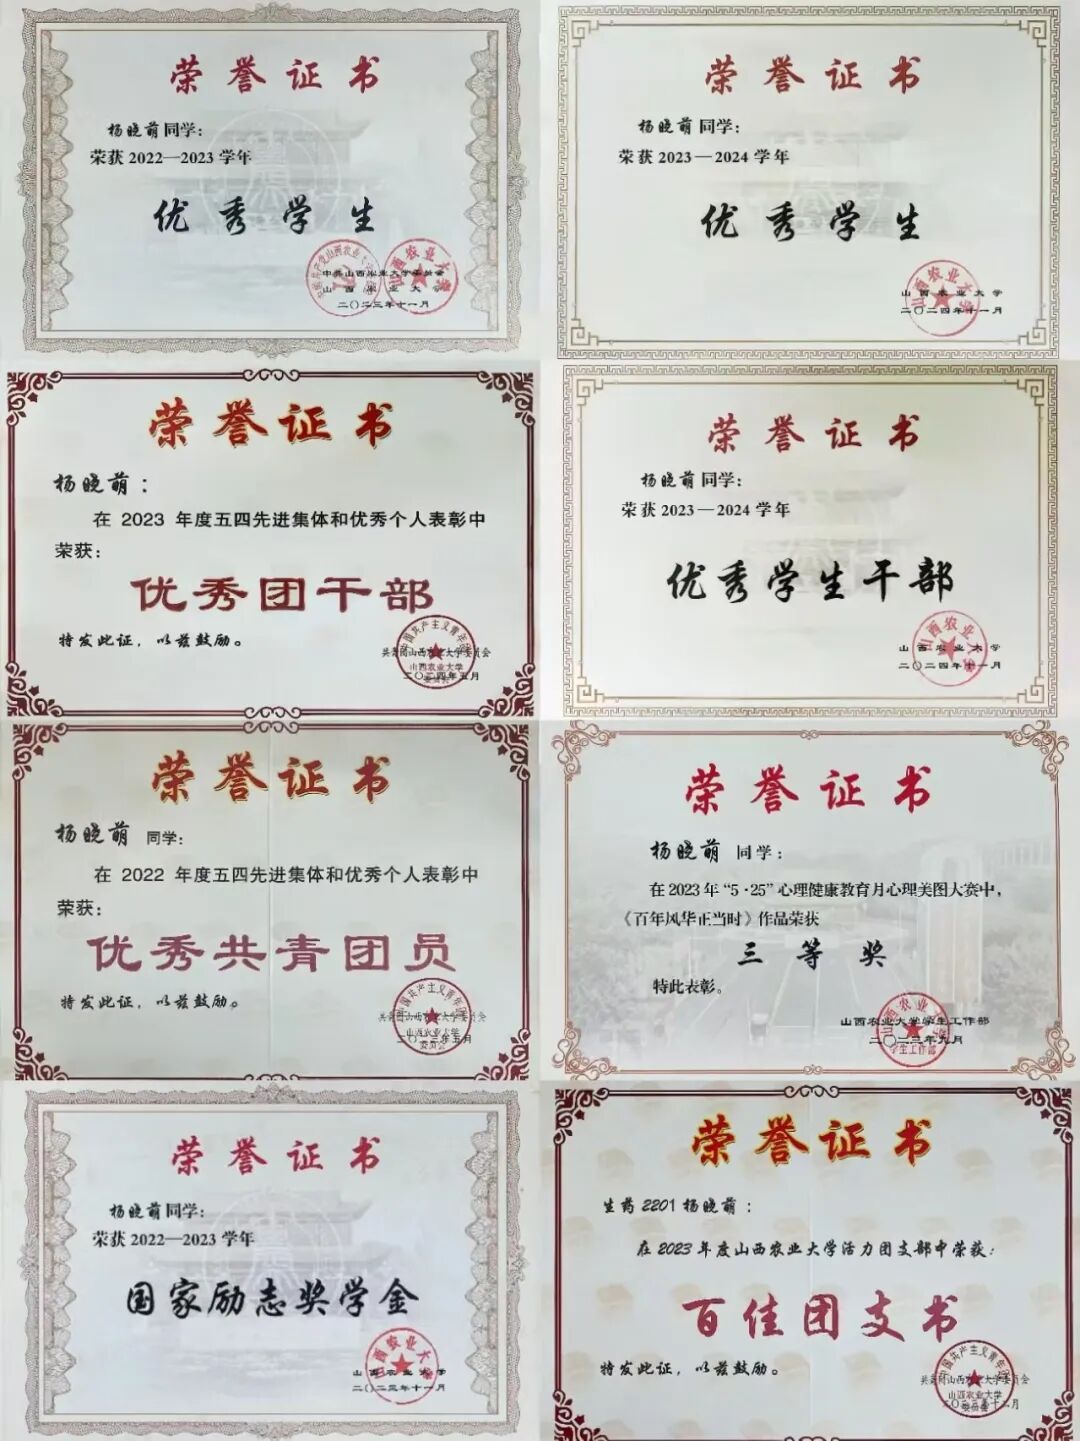 荣誉证书
杨晓萌同学：
荣获2022—2023学年
优秀学生
中共山西农业大学委员会
山西农业大学
二〇二三年十一月
荣誉证书
杨晓萌同学：
荣获2023—2024学年
优秀学生
山西农业大学
二〇二四年十一月
荣誉证书
杨晓萌：
在 2023 年度五四先进集体和优秀个人表彰中
荣获：
优秀团干部
特发此证，以兹鼓励。
共青团山西农业大学委员会
二〇二四年五月
荣誉证书
杨晓萌同学：
荣获2023—2024学年
优秀学生干部
山西农业大学
二〇二四年十一月
荣誉证书
杨晓萌 同学：
在 2022 年度五四先进集体和优秀个人表彰中
荣获：
优秀共青团员
特发此证，以兹鼓励。
共青团山西农业大学委员会
二〇二三年五月
荣誉证书
杨晓萌 同学：
在2023年“5·25”心理健康教育月心理美图大赛中，
《百年风华正当时》作品荣获
三等奖
特此表彰。
山西农业大学学生工作部
二〇二三年九月
荣誉证书
杨晓萌同学：
荣获2022—2023学年
国家励志奖学金
山西农业大学
二〇二三年十一月
荣誉证书
生药2201杨晓萌：
在2023年度山西农业大学活力团支部中荣获：
百佳团支书
特发此证，以兹鼓励。
共青团山西农业大学委员会
二〇二三年十二月